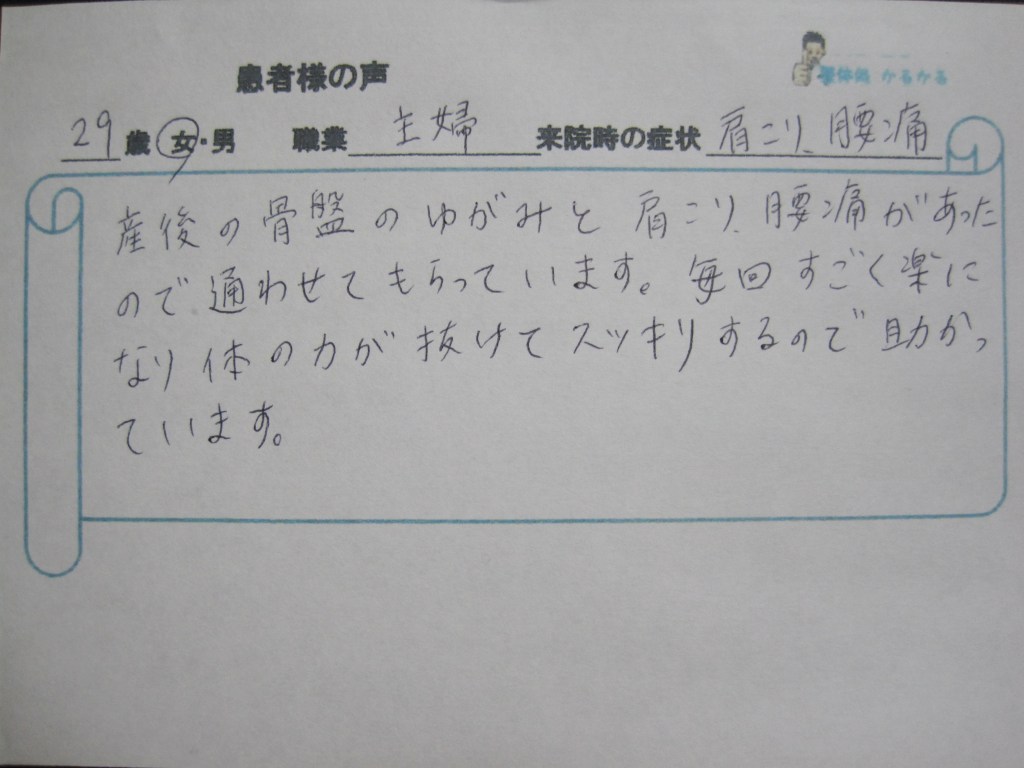 患者様の声
整体処 かるかる
29歳 女・男 職業 主婦 来院時の症状 肩こり、腰痛
産後の骨盤のゆがみと肩こり、腰痛があった
ので通わせてもらっています。毎回すごく楽に
なり体の力が抜けてスッキリするので助かっ
ています。